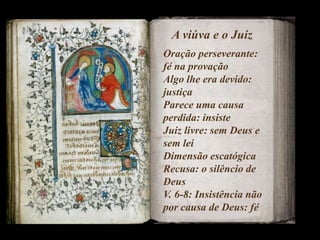 A viúva e o Juiz
Oração perseverante:
fé na provação
Algo lhe era devido:
justiça
Parece uma causa
perdida: insiste
Juiz livre: sem Deus e
sem lei
Dimensão escatógica
Recusa: o silêncio de
Deus
V. 6-8: Insistência não
por causa de Deus: fé